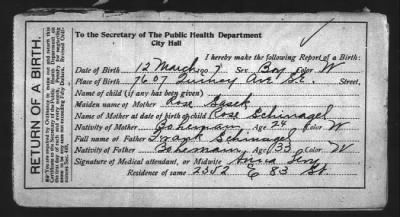 RETURN OF A BIRTH.
To the Secretary of The Public Health Department
City Hall
I hereby make the following Report of a Birth:
Date of Birth 12 March 1907 Sex Boy Color W
Place of Birth 7607 Ave St. Street.
Name of child (if any has been given)
Maiden name of Mother Rose
Name of Mother at date of birth of child Rose Schinagel
Nativity of Mother Bohemian Age 24 Color W
Full name of Father Frank Schinagel
Nativity of Father Bohemian Age 33 Color W
Signature of Medical attendant, or Midwife Anna
Residence of same 2352 E 83 St.